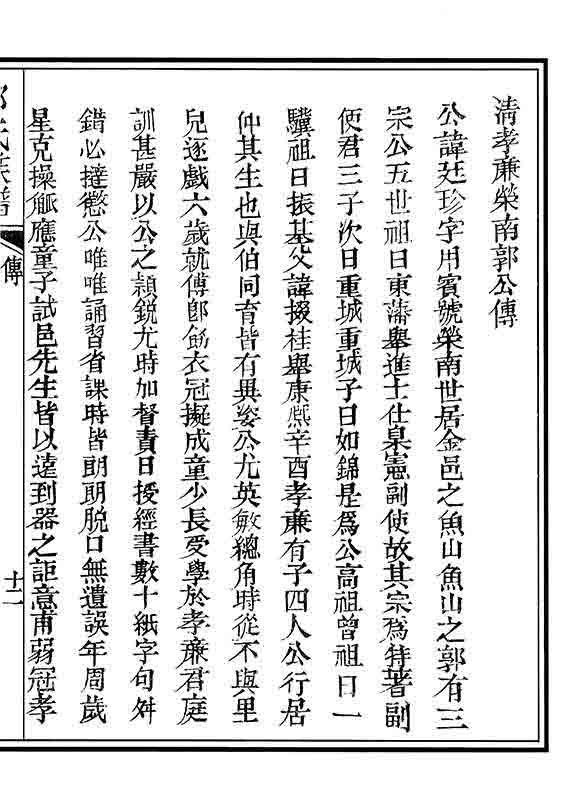 清孝亷榮南郭公傳
公諱廷珍字用賓號榮南世居金邑之魚山魚山之郭有三
宗公五世祖曰東藩舉進士仕臬憲副使故其宗爲特著副
使君三子次曰重城重城子曰如錦是爲公高祖曾祖曰一
驥祖曰振基父諱掇桂舉康熙辛酉孝亷有子四人公行居
仲其生也與伯同育皆有異姿公尤英敏總角時從不與里
兒逐戲六歲就傅卽飭衣冠擬成童少長受學於孝亷君庭
訓甚嚴以公之頴銳尤時加督責日授經書數十紙字句舛
錯必撻懲公唯唯誦習省課時皆朗朗脫口無遺誤年周歲
星克操觚應童子試邑先生皆以遠到器之詎意甫弱冠孝
氏族譜
傳
十二